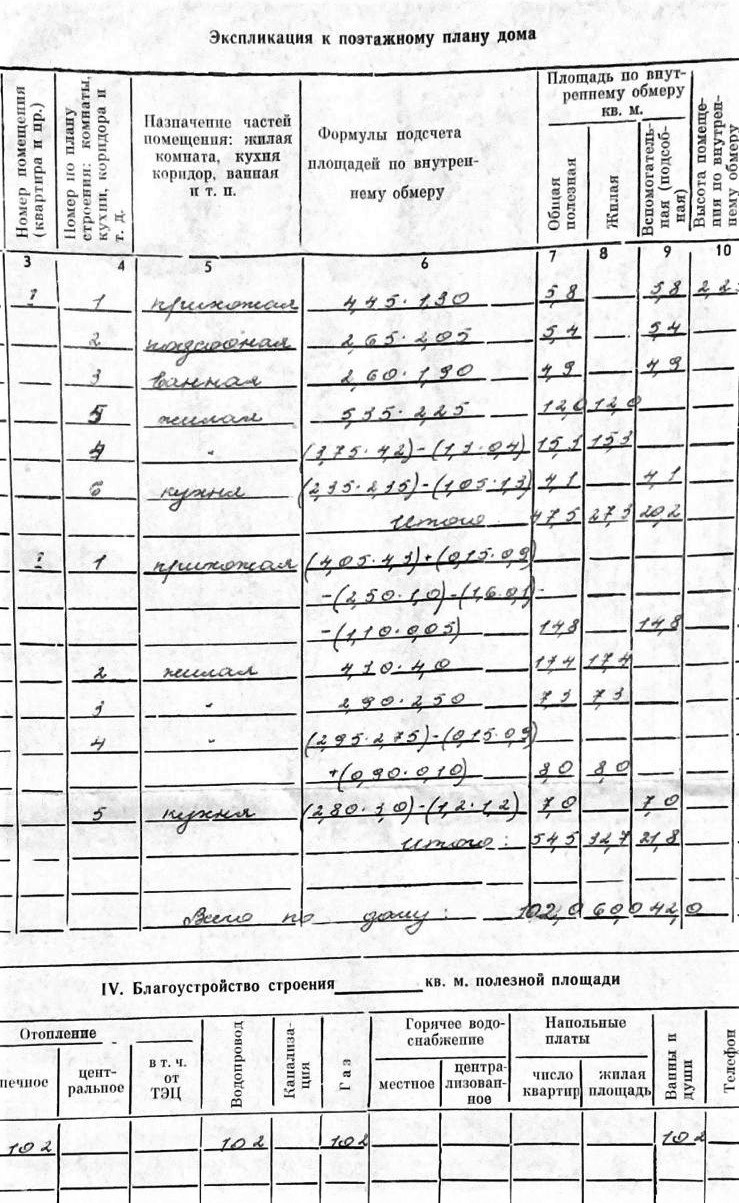 Экспликация к поэтажному плану дома
Номер помещения (квартира и пр.)
Номер по плану строения: комнаты, кухни, коридора и т. д.
Назначение частей помещения: жилая комната, кухня коридор, ванная и т. п.
Формулы подсчета площадей по внутреннему обмеру
Площадь по внутреннему обмеру кв. м.
Общая полезная
Жилая
Вспомогательная (подсобная)
Высота помещения по внутреннему обмеру
3 4 5 6 7 8 9 10
1 1 прихожая 4,45·1,30 5,8 — 5,8 2,2
2 подсобная 2,65·2,05 5,4 — 5,4
3 ванная 2,60·1,90 4,9 — 4,9
5 жилая 5,35·2,25 12,0 12,0
4 " (3,75·4,2)-(1,1·0,4) 15,3 15,3
6 кухня (2,35·2,35)-(1,05·1,3) 4,1 4,1
Итого 47,5 27,3 20,2
1 прихожая (4,05·4,3)+(0,15·0,9)
-(2,50·1,0)-(1,6·0,1)-
-(1,10·0,05) 14,8 14,8
2 жилая 4,30·4,0 17,4 17,4
3 " 2,90·2,50 7,3 7,3
4 " (2,95·2,75)-(0,15·0,9)
+(0,90·0,10) 8,0 8,0
5 кухня (2,80·3,0)-(1,2·1,2) 7,0 7,0
Итого: 54,5 32,7 21,8
Всего по дому: 102,0 60,0 42,0
IV. Благоустройство строения кв. м. полезной площади
Отопление
печное
центральное
в т. ч. от ТЭЦ
Водопровод
Канализация
Газ
Горячее водоснабжение
местное
централизованное
Напольные плиты
число квартир
жилая площадь
Ванны и души
Телефон
102 102 102 102